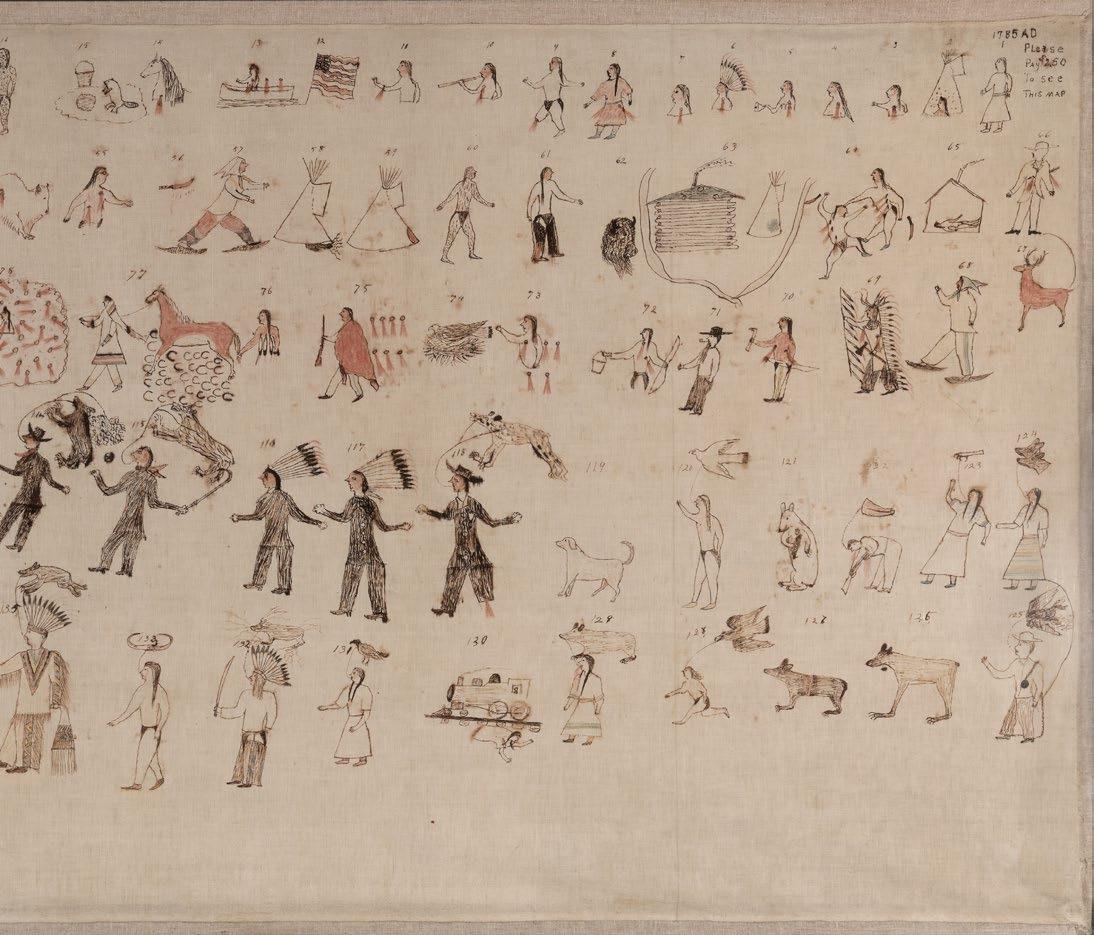 1785 AD
Please
To see
THIS MAP
15 13 12 10 8 6 5 4 3 2 1
56 57 58 59 60 61 62 63 64 65 66
67
78 77 76 75 74 73 72 71 70 69 68
115 116 117 118 119 120 121 123 124
133 132 131 130 129 128 127 126 125